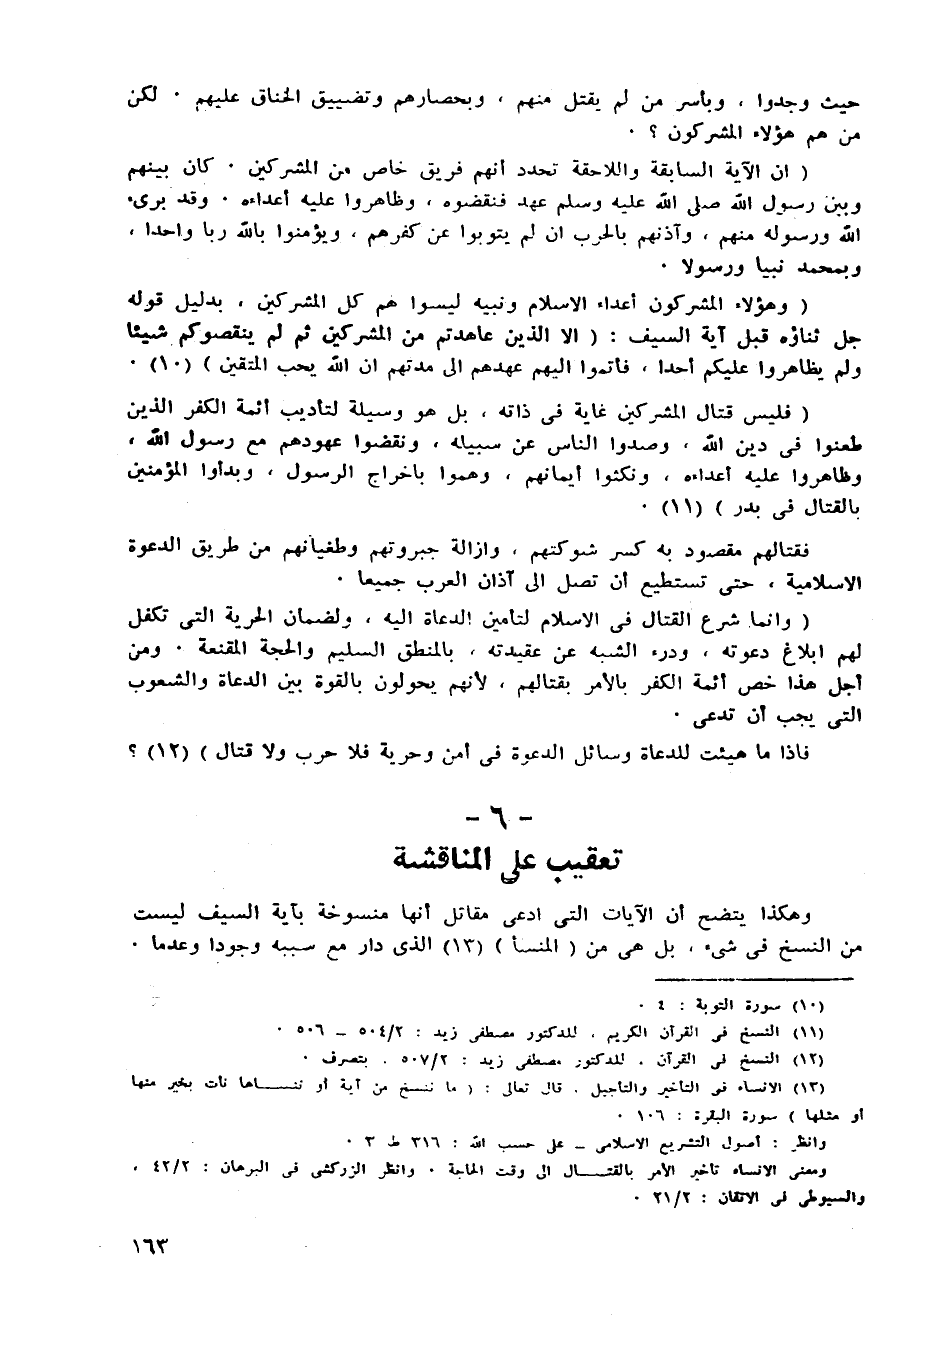 حيث وجدوا ، وبأسر من لم يقتل منهم ، وبحصارهم وتضييق الخناق عليهم ٠ لكن
من هم هؤلاء المشركون ؟ ٠
( ان الآية السابقة واللاحقة تحدد أنهم فريق خاص من المشركين ٠ كان بينهم
وبين رسول الله صلى الله عليه وسلم عهد فنقضوه ، وظاهروا عليه أعداءه ٠ وقد برىء
الله ورسوله منهم ، وآذنهم بالحرب ان لم يتوبوا عن كفرهم ، ويؤمنوا بالله ربا واحدا ،
وبمحمد نبيا ورسولا ٠
( وهؤلاء المشركون أعداء الاسلام ونبيه ليسوا هم كل المشركين ، بدليل قوله
جل ثناؤه قبل آية السيف : ( الا الذين عاهدتم من المشركين ثم لم ينقصوكم شيئا
ولم يظاهروا عليكم أحدا ، فأتموا اليهم عهدهم الى مدتهم ان الله يحب المتقين ) (١٠) ٠
( فليس قتال المشركين غاية فى ذاته ، بل هو وسيلة لتأديب أئمة الكفر الذين
طعنوا فى دين الله ، وصدوا الناس عن سبيله ، ونقضوا عهودهم مع رسول الله ،
وظاهروا عليه أعداءه ، ونكثوا أيمانهم ، وهموا باخراج الرسول ، وبدأوا المؤمنين
بالقتال فى بدر ) (١١) ٠
فقتالهم مقصود به كسر شوكتهم ، وازالة جبروتهم وطغيانهم من طريق الدعوة
الاسلامية ، حتى تستطيع أن تصل الى آذان العرب جميعا ٠
( وانما شرع القتال فى الاسلام لتأمين الدعاة اليه ، ولضمان الحرية التى تكفل
لهم ابلاغ دعوته ، ودرء الشبه عن عقيدته ، بالمنطق السليم والحجة المقنعة ٠ ومن
أجل هذا خص أئمة الكفر بالأمر بقتالهم ، لأنهم يحولون بالقوة بين الدعاة والشعوب
التى يجب أن تدعى ٠
فاذا ما هيئت للدعاة وسائل الدعوة فى أمن وحرية فلا حرب ولا قتال ) (١٢) ؟
- ٦ -
تعقيب على المناقشة
وهكذا يتضح أن الآيات التى ادعى مقاتل أنها منسوخة بآية السيف ليست
من النسخ فى شىء ، بل هى من ( المنسأ ) (١٣) الذى دار مع سببه وجودا وعدما ٠
(١٠) سورة التوبة : ٤ ٠
(١١) النسخ فى القرآن الكريم ، للدكتور مصطفى زيد : ٥٠٤/٢ – ٥٠٦ ٠
(١٢) النسخ فى القرآن ، للدكتور مصطفى زيد : ٥٠٧/٢ ، بتصرف ٠
(١٣) الانساء فى التأخير والتأجيل ، قال تعالى : ( ما ننسخ من آية أو ننساها نأت بخير منها
أو مثلها ) سورة البقرة : ١٠٦ ٠
وانظر : أصول التشريع الاسلامى – على حسب الله : ٣١٦ ط ٣ ٠
ومعنى الانساء تأخير الأمر بالقتال الى وقت الحاجة ٠ وانظر الزركشى فى البرهان : ٤٢/٢ ،
والسيوطى فى الاتقان : ٢١/٢ ٠
١٦٣